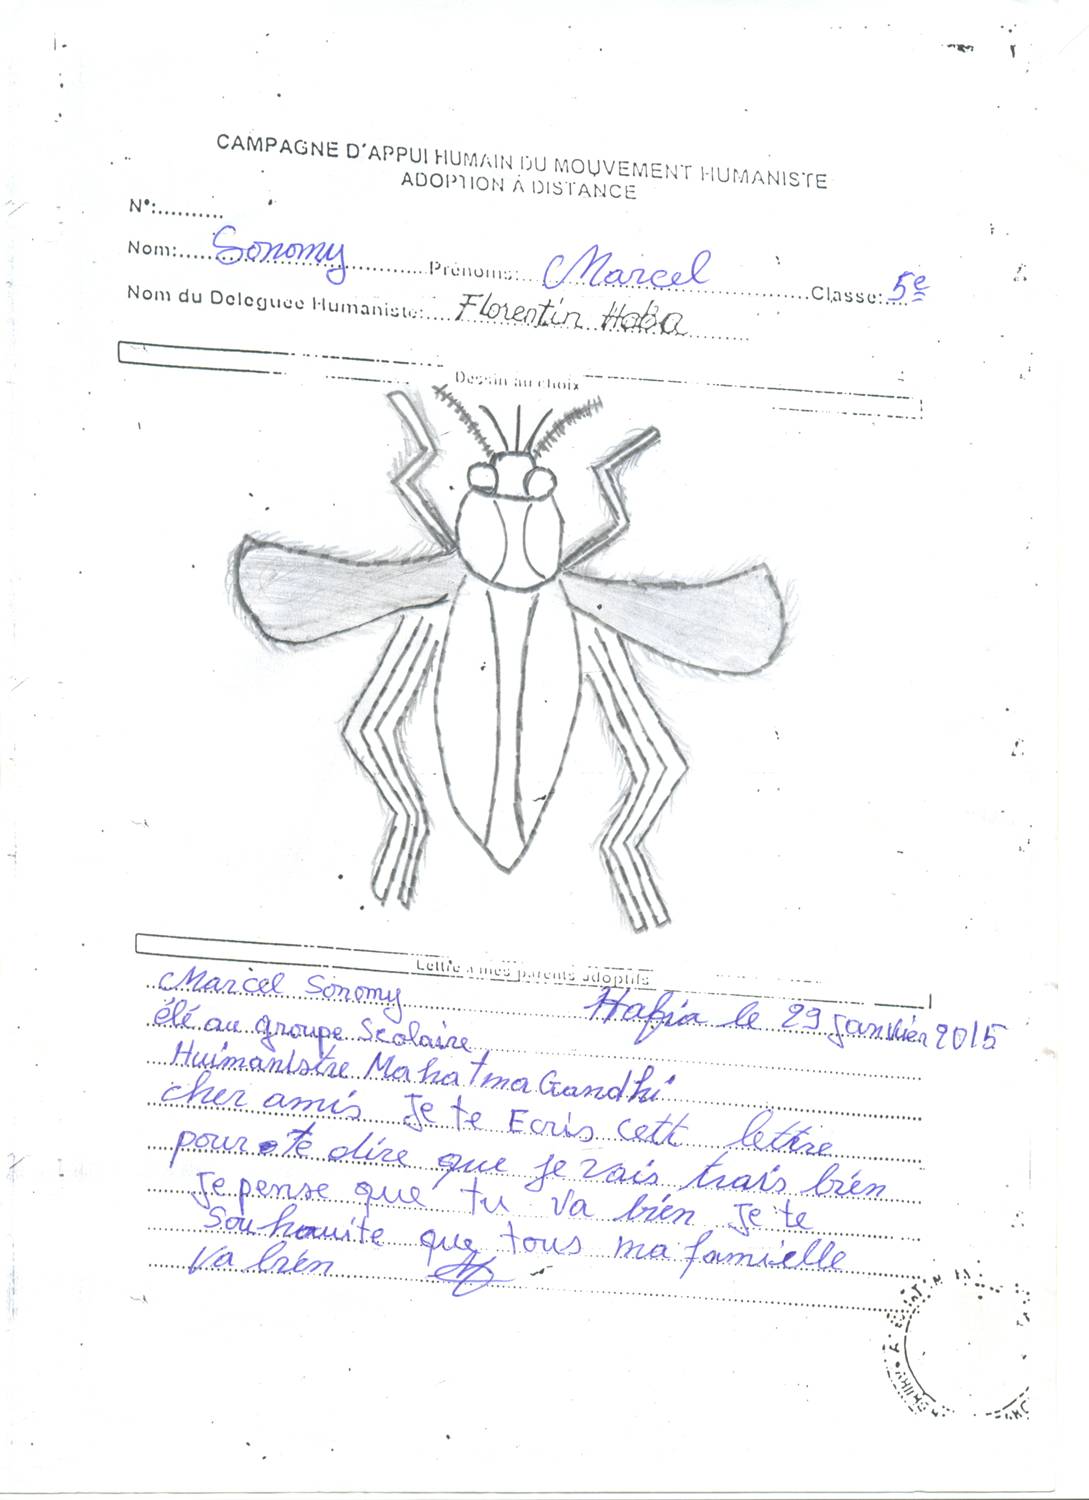 CAMPAGNE D'APPUI HUMAIN DU MOUVEMENT HUMANISTE
ADOPTION À DISTANCE
N°:..........
Nom: Sonomy Prénoms: Marcel Classe: 5e
Nom du Deleguée Humaniste: Florentin Haba
Dessin au choix
Lettre a mes parents adoptifs
Marcel Sonomy
Hafia le 29 janvier 2015
élé au groupe Scolaire
Huimanistre Mahatma Gandhi
cher amis Je te Ecris cett lettre
pour te dire que je vais trais bien
Je pense que tu va bien Je te
Souhauite que tous ma famielle
va bien